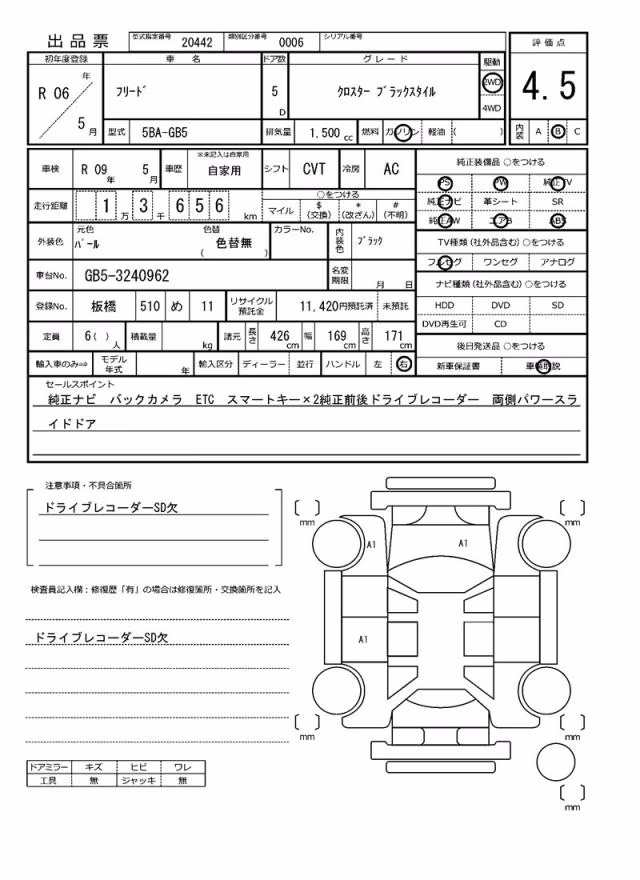 出品票 型式指定番号 20442 類別区分番号 0006 シリアル番号
初年度登録 車名 ドア数 グレード 駆動 評価点
R 06 年 5 月 ﾌﾘｰﾄﾞ 5 D ｸﾛｽﾀｰ ﾌﾞﾗｯｸｽﾀｲﾙ 2WD 4WD 4.5
型式 5BA-GB5 排気量 1.500 cc 燃料 ガソリン 軽油 ( ) 内装 A B C
車検 R 09 年 5 月 車歴 ※未記入は自家用 自家用 シフト CVT 冷房 AC
純正装備品 ○をつける
PS PW 純正TV
純正ナビ 革シート SR
純正AW エアB ABS
走行距離 1 万 3 千 6 5 6 km
○をつける
マイル $ (交換) * (改ざん) # (不明)
外装色 元色 ﾊﾟｰﾙ 色替 ( 色替無 ) カラーNo. 内装色 ﾌﾞﾗｯｸ
TV種類 (社外品含む) ○をつける
フルセグ ワンセグ アナログ
車台No. GB5-3240962 名変期限 月 日
ナビ種類 (社外品含む) ○をつける
HDD DVD SD
DVD再生可 CD
登録No. 板橋 510 め 11 リサイクル預託金 11,420円預託済 未預託
定員 6( ) 人 積載量 kg 諸元 長さ 426 cm 幅 169 cm 高さ 171 cm
後日発送品 ○をつける
新車保証書 車輌取説
輸入車のみ⇒ モデル年式 年 輸入区分 ディーラー 並行 ハンドル 左 右
セールスポイント
純正ナビ バックカメラ ETC スマートキー×2純正前後ドライブレコーダー 両側パワースラ
イドドア
注意事項・不具合箇所
ドライブレコーダーSD欠
検査員記入欄：修復歴「有」の場合は修復箇所・交換箇所を記入
ドライブレコーダーSD欠
ドアミラー キズ ヒビ ワレ
工具 無 ジャッキ 無
mm mm
A1 A1
A1
mm mm
mm